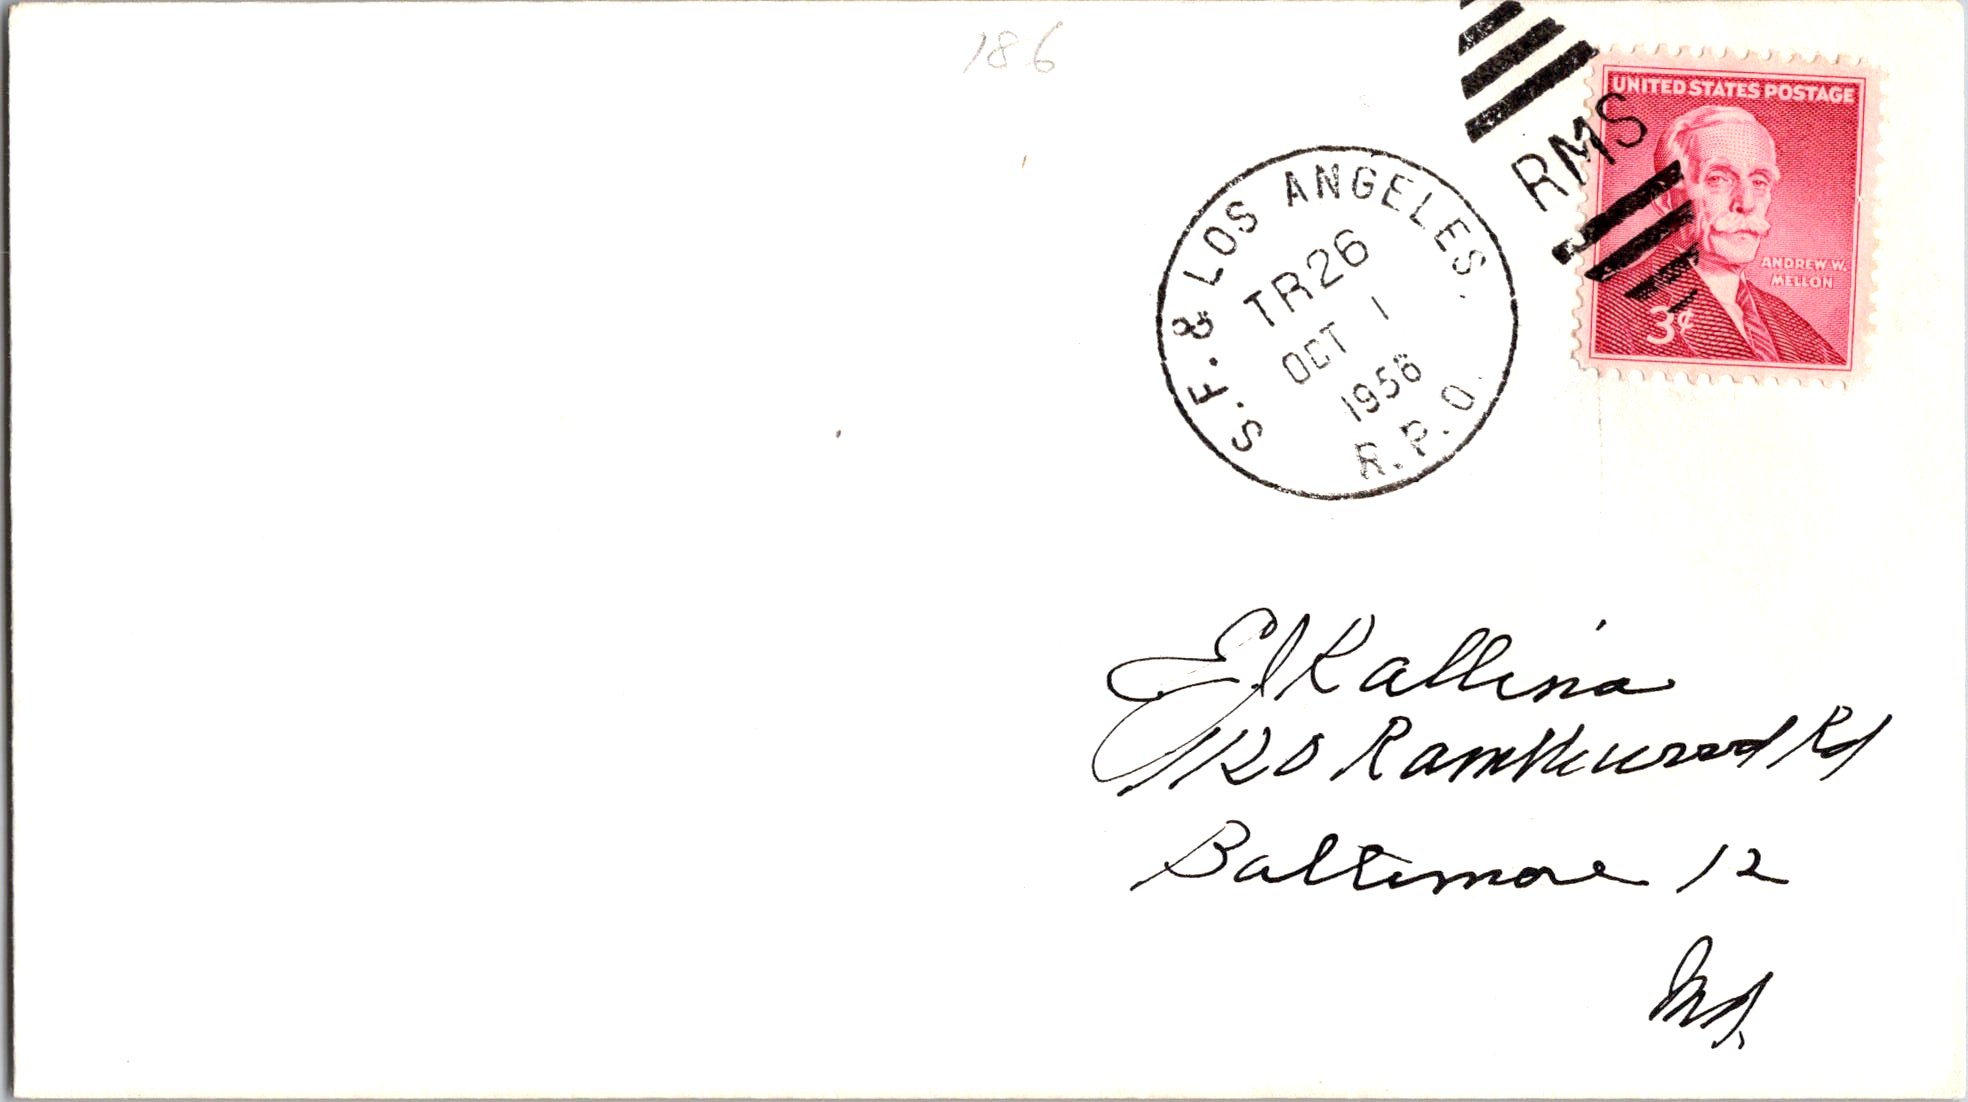 186
RMS
UNITED STATES POSTAGE
ANDREW W.
MELLON
3¢
S.F. & LOS ANGELES.
TR26
OCT 1
1956
R.P.O.
EJ Kallina
1120 Ramblewood Rd
Baltimore 12
Md.